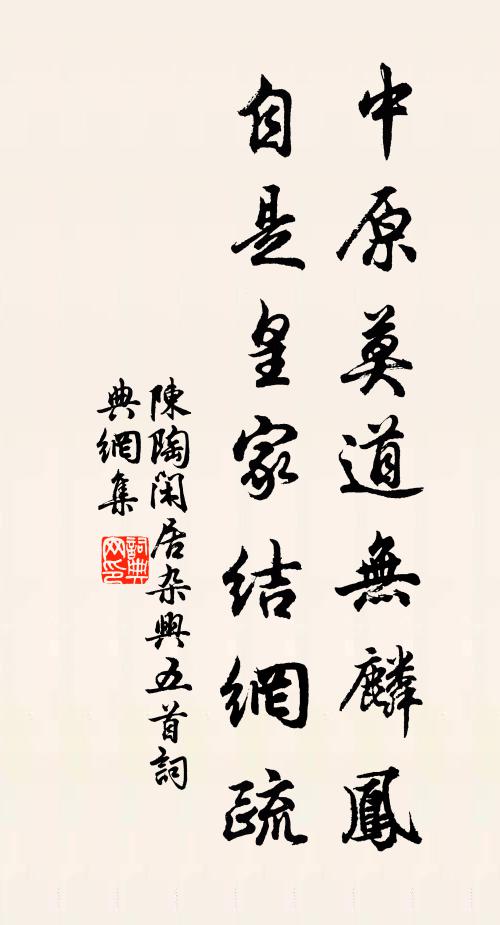 中原莫道無麟鳳
自是皇家結網疏
陳陶閑居杂興五首詞
典網集
詞典網印